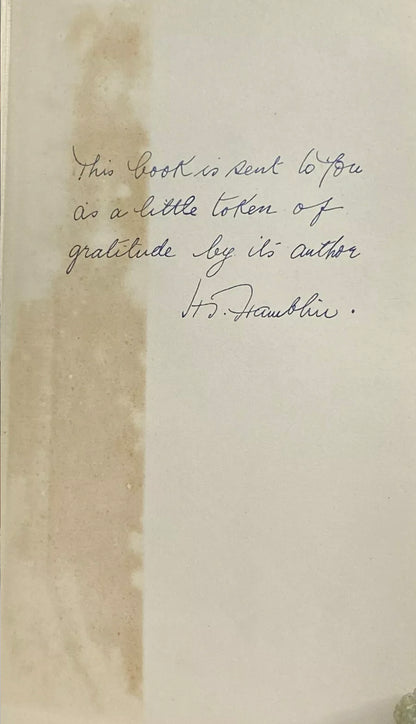 This book is sent to You
as a little token of
gratitude by its author
H.T. Hamblin.